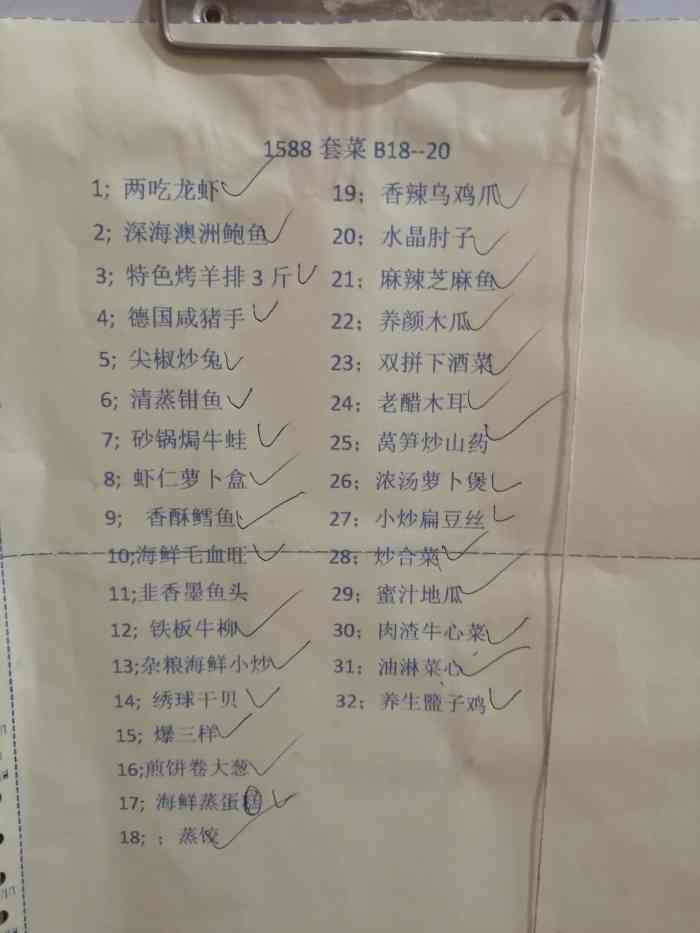 1588 套菜 B18--20
1; 两吃龙虾
2; 深海澳洲鲍鱼
3; 特色烤羊排 3 斤
4; 德国咸猪手
5; 尖椒炒兔
6; 清蒸钳鱼
7; 砂锅焗牛蛙
8; 虾仁萝卜盒
9; 香酥鳕鱼
10;海鲜毛血旺
11;韭香墨鱼头
12; 铁板牛柳
13;杂粮海鲜小炒
14; 绣球干贝
15; 爆三样
16;煎饼卷大葱
17; 海鲜蒸蛋
18; ; 蒸饺
19; 香辣乌鸡爪
20; 水晶肘子
21; 麻辣芝麻鱼
22; 养颜木瓜
23; 双拼下酒菜
24; 老醋木耳
25; 莴笋炒山药
26; 浓汤萝卜煲
27; 小炒扁豆丝
28; 炒合菜
29; 蜜汁地瓜
30; 肉渣牛心菜
31; 油淋菜心
32; 养生盬子鸡